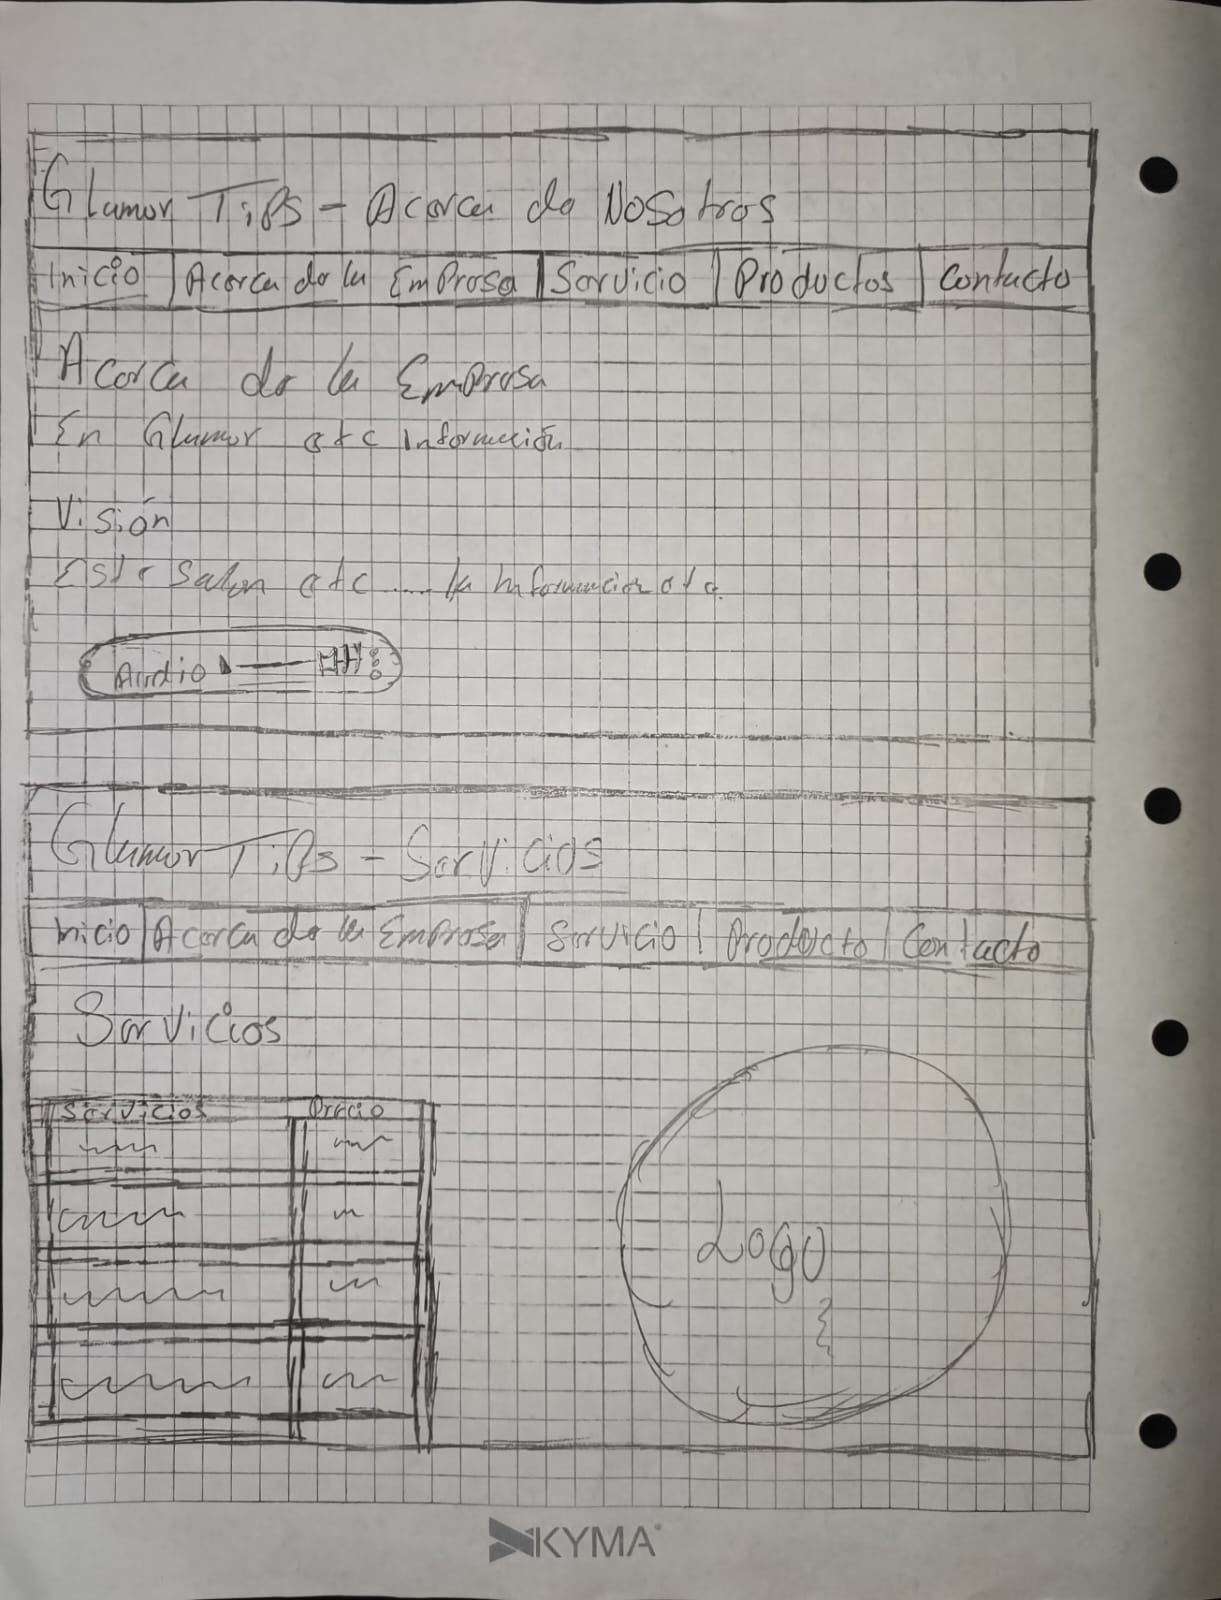 Glamor Tips - Acerca de Nosotros
Inicio Acerca de la Empresa Servicio Productos Contacto
Acerca de la Empresa
En Glamor etc Información
Visión
Este Salon etc .... la Informacion etc.
Audio
Glamor Tips - Servicios
Inicio Acerca de la Empresa Servicio Producto Contacto
Servicios
Servicios Precio
Logo
KYMA